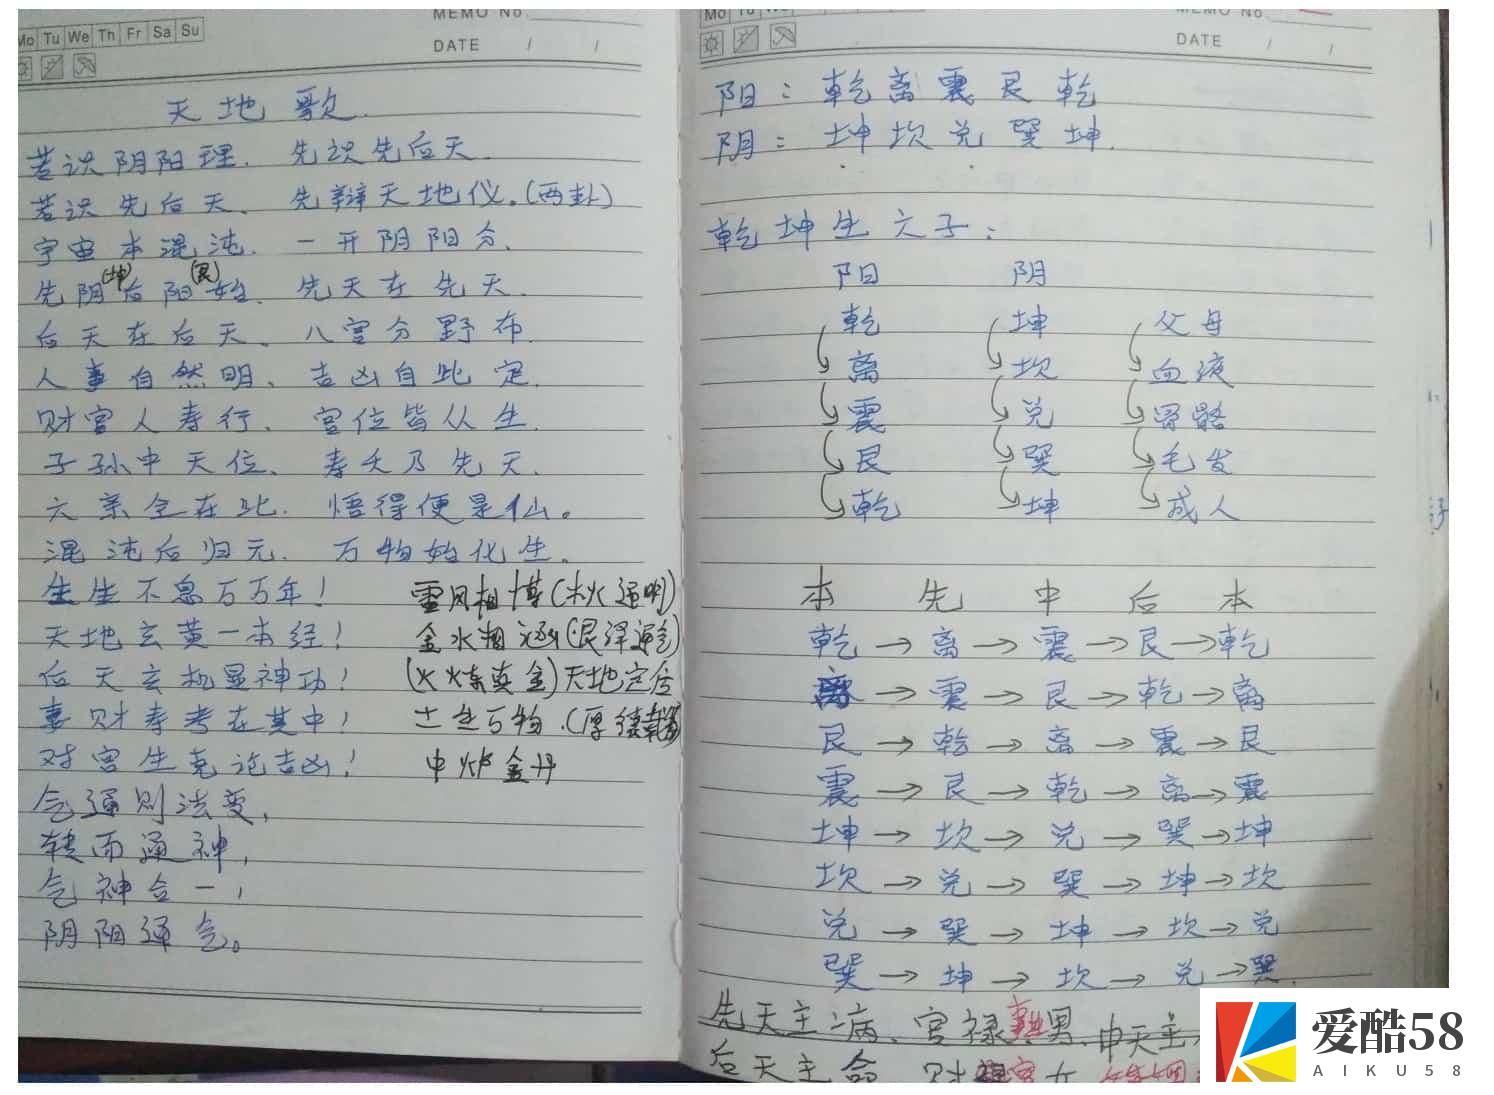 MEMO No
Mo Tu We Th Fr Sa Su
DATE / /
天地歌
若识阴阳理、先识先后天、
若识先后天、先辩天地仪。(两卦)
宇宙本混沌、一开阴阳分、
(坤) (艮)
先阴后阳始、先天在先天、
后天在后天、八宫分野布、
人事自然明、吉凶自此定、
财官人寿行、宫位皆从生、
子孙中天位、寿夭乃先天、
六亲全在此、悟得便是仙。
混沌后归元、万物始化生。
生生不息万万年! 雷风相博(木火通明)
天地玄黄一本经! 金水相涵(艮泽通气)
后天玄机显神功! (火炼真金)天地定位
事财寿考在其中! 土生万物.(厚德载物)
对宫生克论吉凶! 中炉金丹
气通则法变,
转而通神,
气神合一,
阴阳通气。
MEMO No
Mo Tu We
DATE / /
阳:乾离震艮乾
阴:坤坎兑巽坤.
乾坤生六子:
阳 阴
乾 坤 父母
离 坎 血液
震 兑 骨骼
艮 巽 毛发
乾 坤 成人
本 先 中 后 本
乾→离→震→艮→乾
离→震→艮→乾→离
艮→乾→离→震→艮
震→艮→乾→离→震
坤→坎→兑→巽→坤
坎→兑→巽→坤→坎
兑→巽→坤→坎→兑
巽→坤→坎→兑→巽.
先天主病、官禄事业男、中天主
后天主命 财
爱酷58
AIKU58